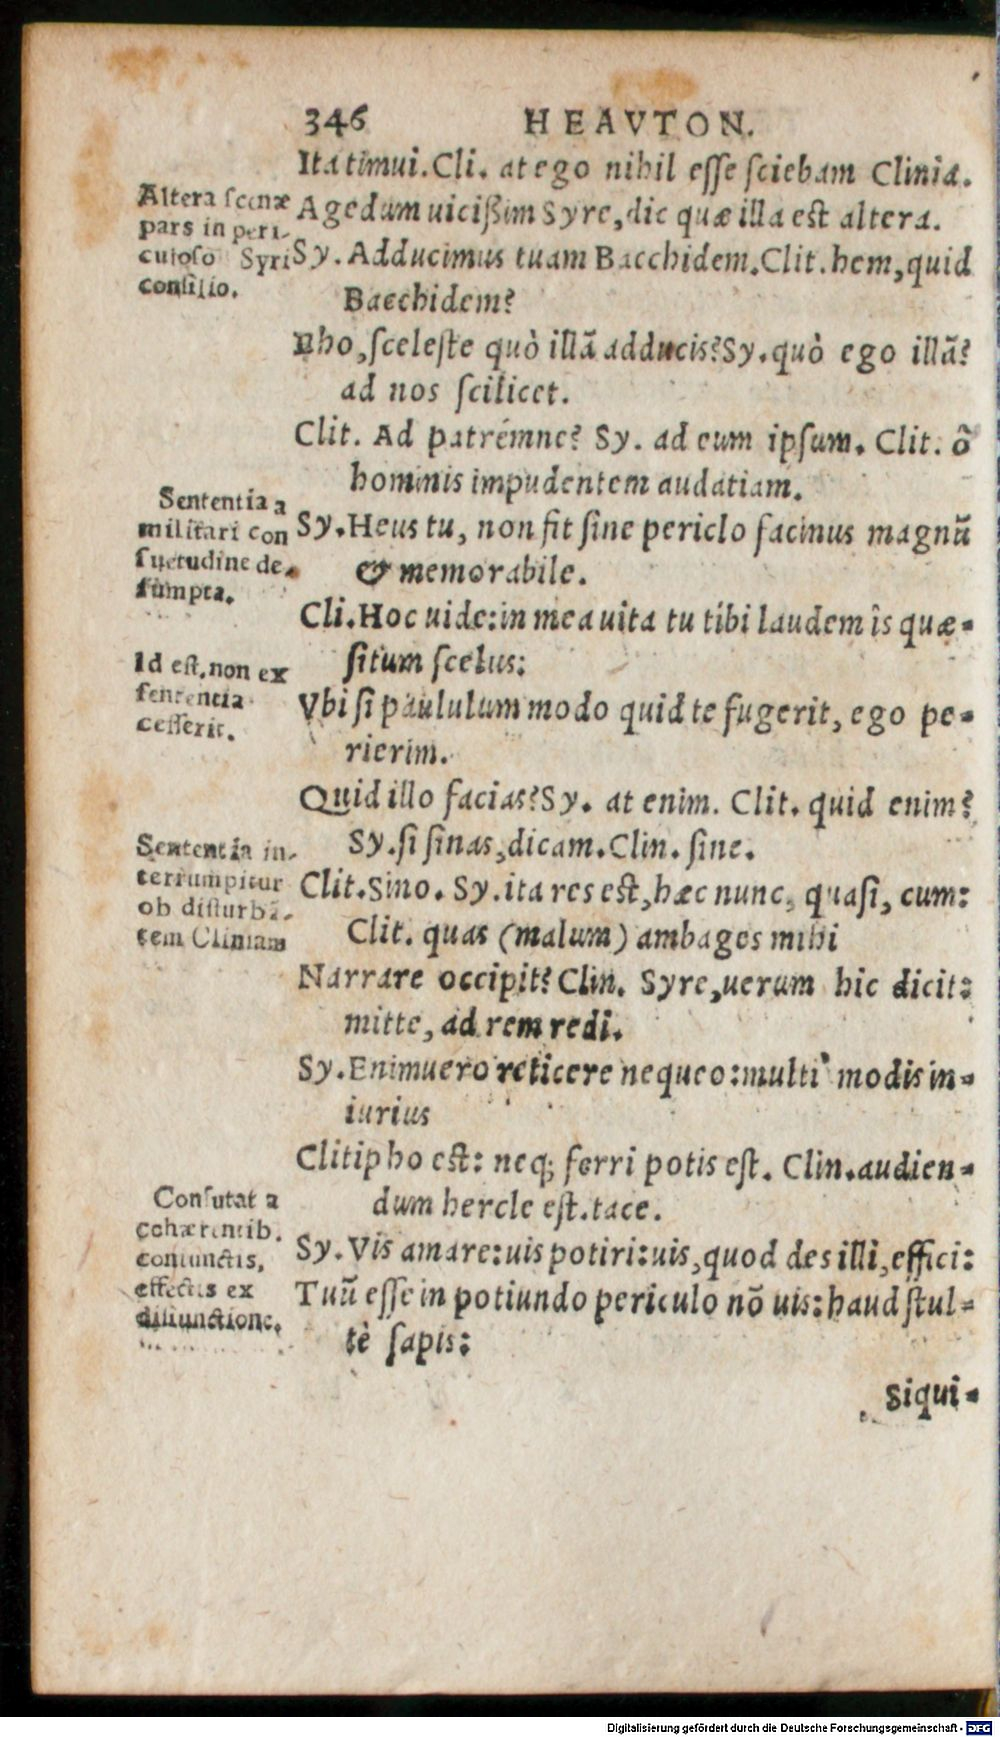 346 HEAVTON.
Ita timui. Cli. at ego nihil esse sciebam Clinia.
Agedum uicißim Syre, dic quæ illa est altera.
Sy. Adducimus tuam Bacchidem. Clit. hem, quid
Bacchidem?
Eho, sceleste quò illã adducis? Sy. quò ego illã?
ad nos scilicet.
Clit. Ad patrémne? Sy. ad eum ipsum. Clit. ô
hominis impudentem audatiam.
Sy. Heus tu, non fit sine periclo facinus magnũ
& memorabile.
Cli. Hoc uide: in mea uita tu tibi laudem îs quæ-
situm scelus:
Vbi si paululum modo quid te fugerit, ego pe-
rierim.
Quid illo facias? Sy. at enim. Clit. quid enim?
Sy. si sinas, dicam. Clin. sine.
Clit. Sino. Sy. ita res est, hæc nunc, quasi, cum:
Clit. quas (malum) ambages mihi
Narrare occipit? Clin. Syre, uerum hic dicit:
mitte, ad rem redi.
Sy. Enimuero reticere nequeo: multi' modis in-
iurius
Clitipho est: neq; ferri potis est. Clin. audien-
dum hercle est. tace.
Sy. Vis amare: uis potiri: uis, quod des illi, effici:
Tuũ esse in potiundo periculo nõ uis: haud stul-
tè sapis:
Siqui-
Altera scenæ
pars in peri-
culoso Syri
consilio.
Sententia a
militari con
suetudine de-
sumpta.
Id est, non ex
sententia
cesserit.
Sententia in-
terrumpitur
ob disturbã-
tem Cliniam
Confutat a
cohærentib.
coniunctis,
effectis ex
disiunctione.
Digitalisierung gefördert durch die Deutsche Forschungsgemeinschaft - DFG